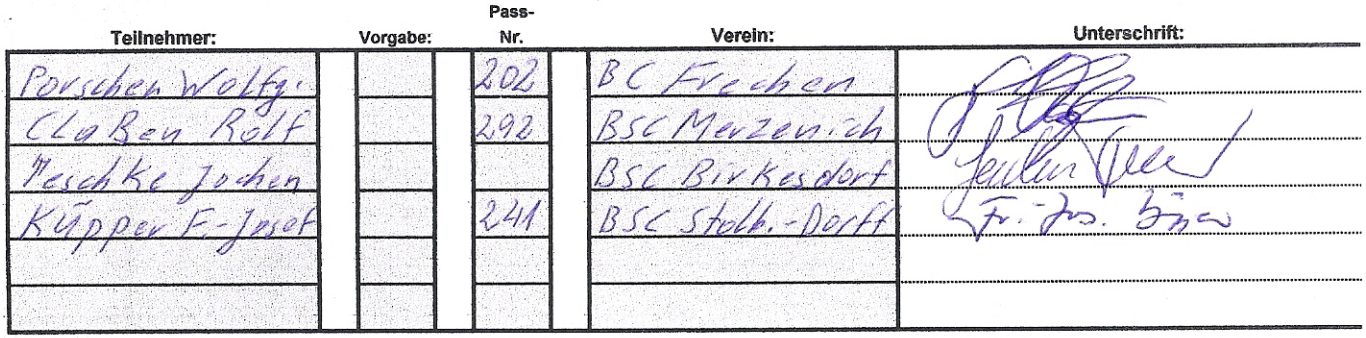 Pass-
Teilnehmer: Vorgabe: Nr. Verein: Unterschrift:
Porschen Wolfg. 202 BC Frechen
Claßen Rolf 292 BSC Merzenich
Meschke Jochen BSC Birkesdorf
Küpper F.-Josef 241 BSC Stolb.-Dorff Fr.-Jos.